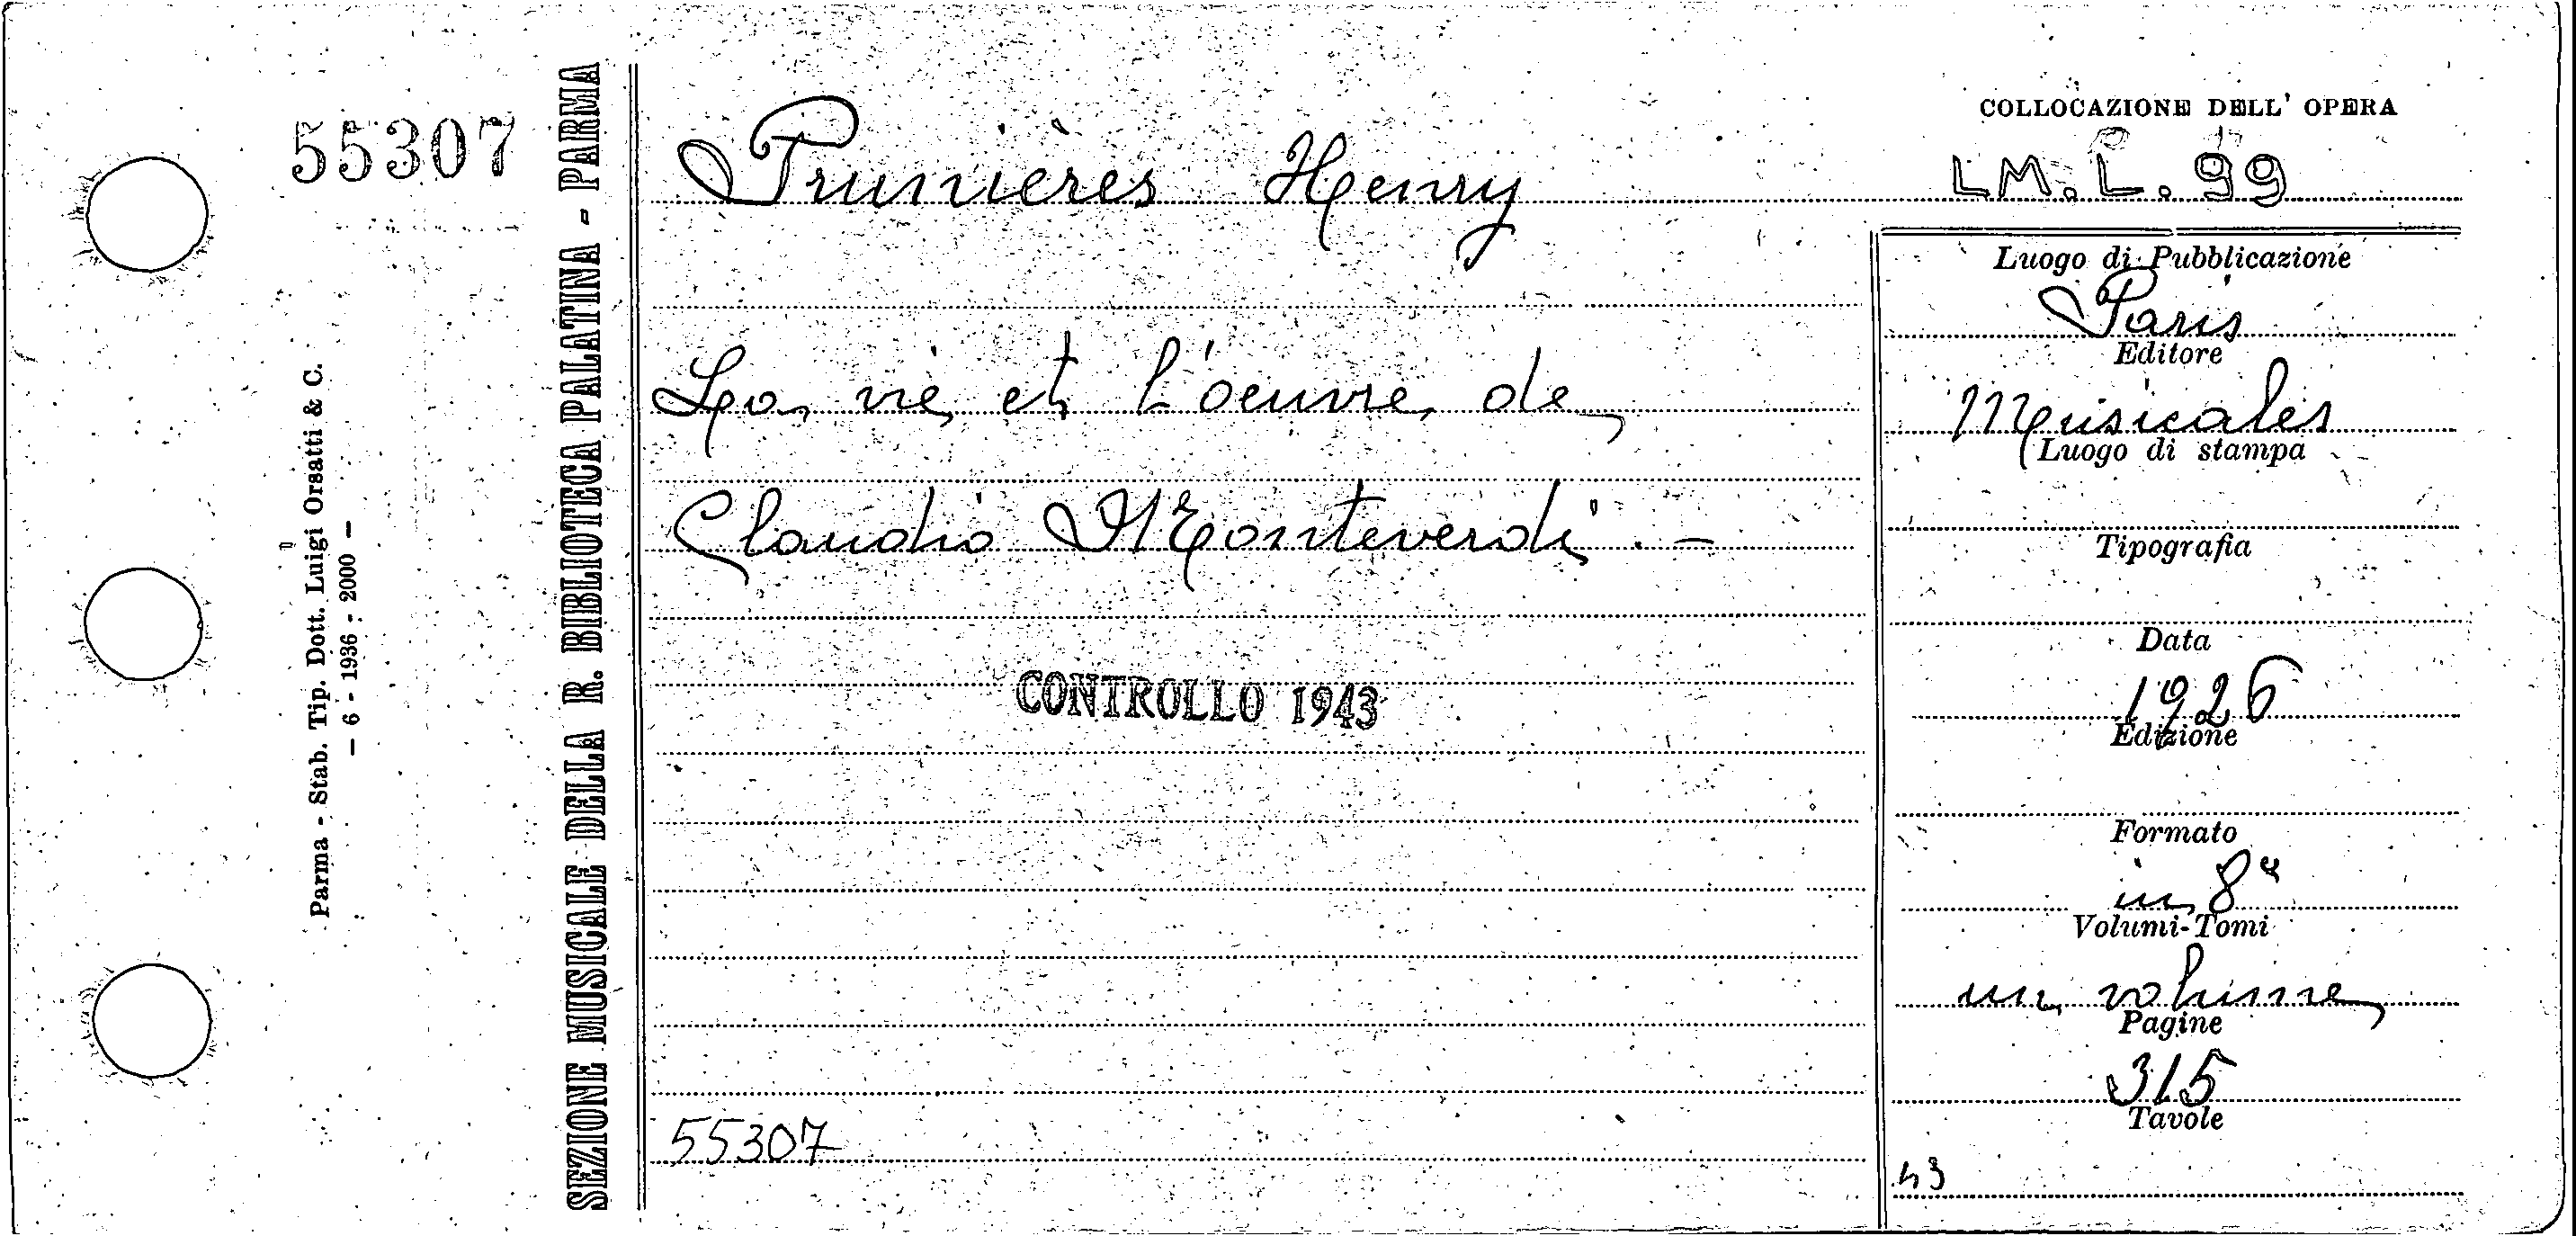 55307
Parma - Stab. Tip. Dott. Luigi Orsatti & C.
— 6 - 1936 - 2000 —
SEZIONE MUSICALE DELLA R. BIBLIOTECA PALATINA - PARMA
Prunières Henry
La vie et l'oeuvre de
Claudio Monteverdi . -
CONTROLLO 1943
55307
COLLOCAZIONE DELL' OPERA
LM. L. 99
Luogo di Pubblicazione
Paris
Editore
Musicales
Luogo di stampa
Tipografia
Data
1926
Edizione
Formato
in 8º
Volumi-Tomi
un volume
Pagine
315
Tavole